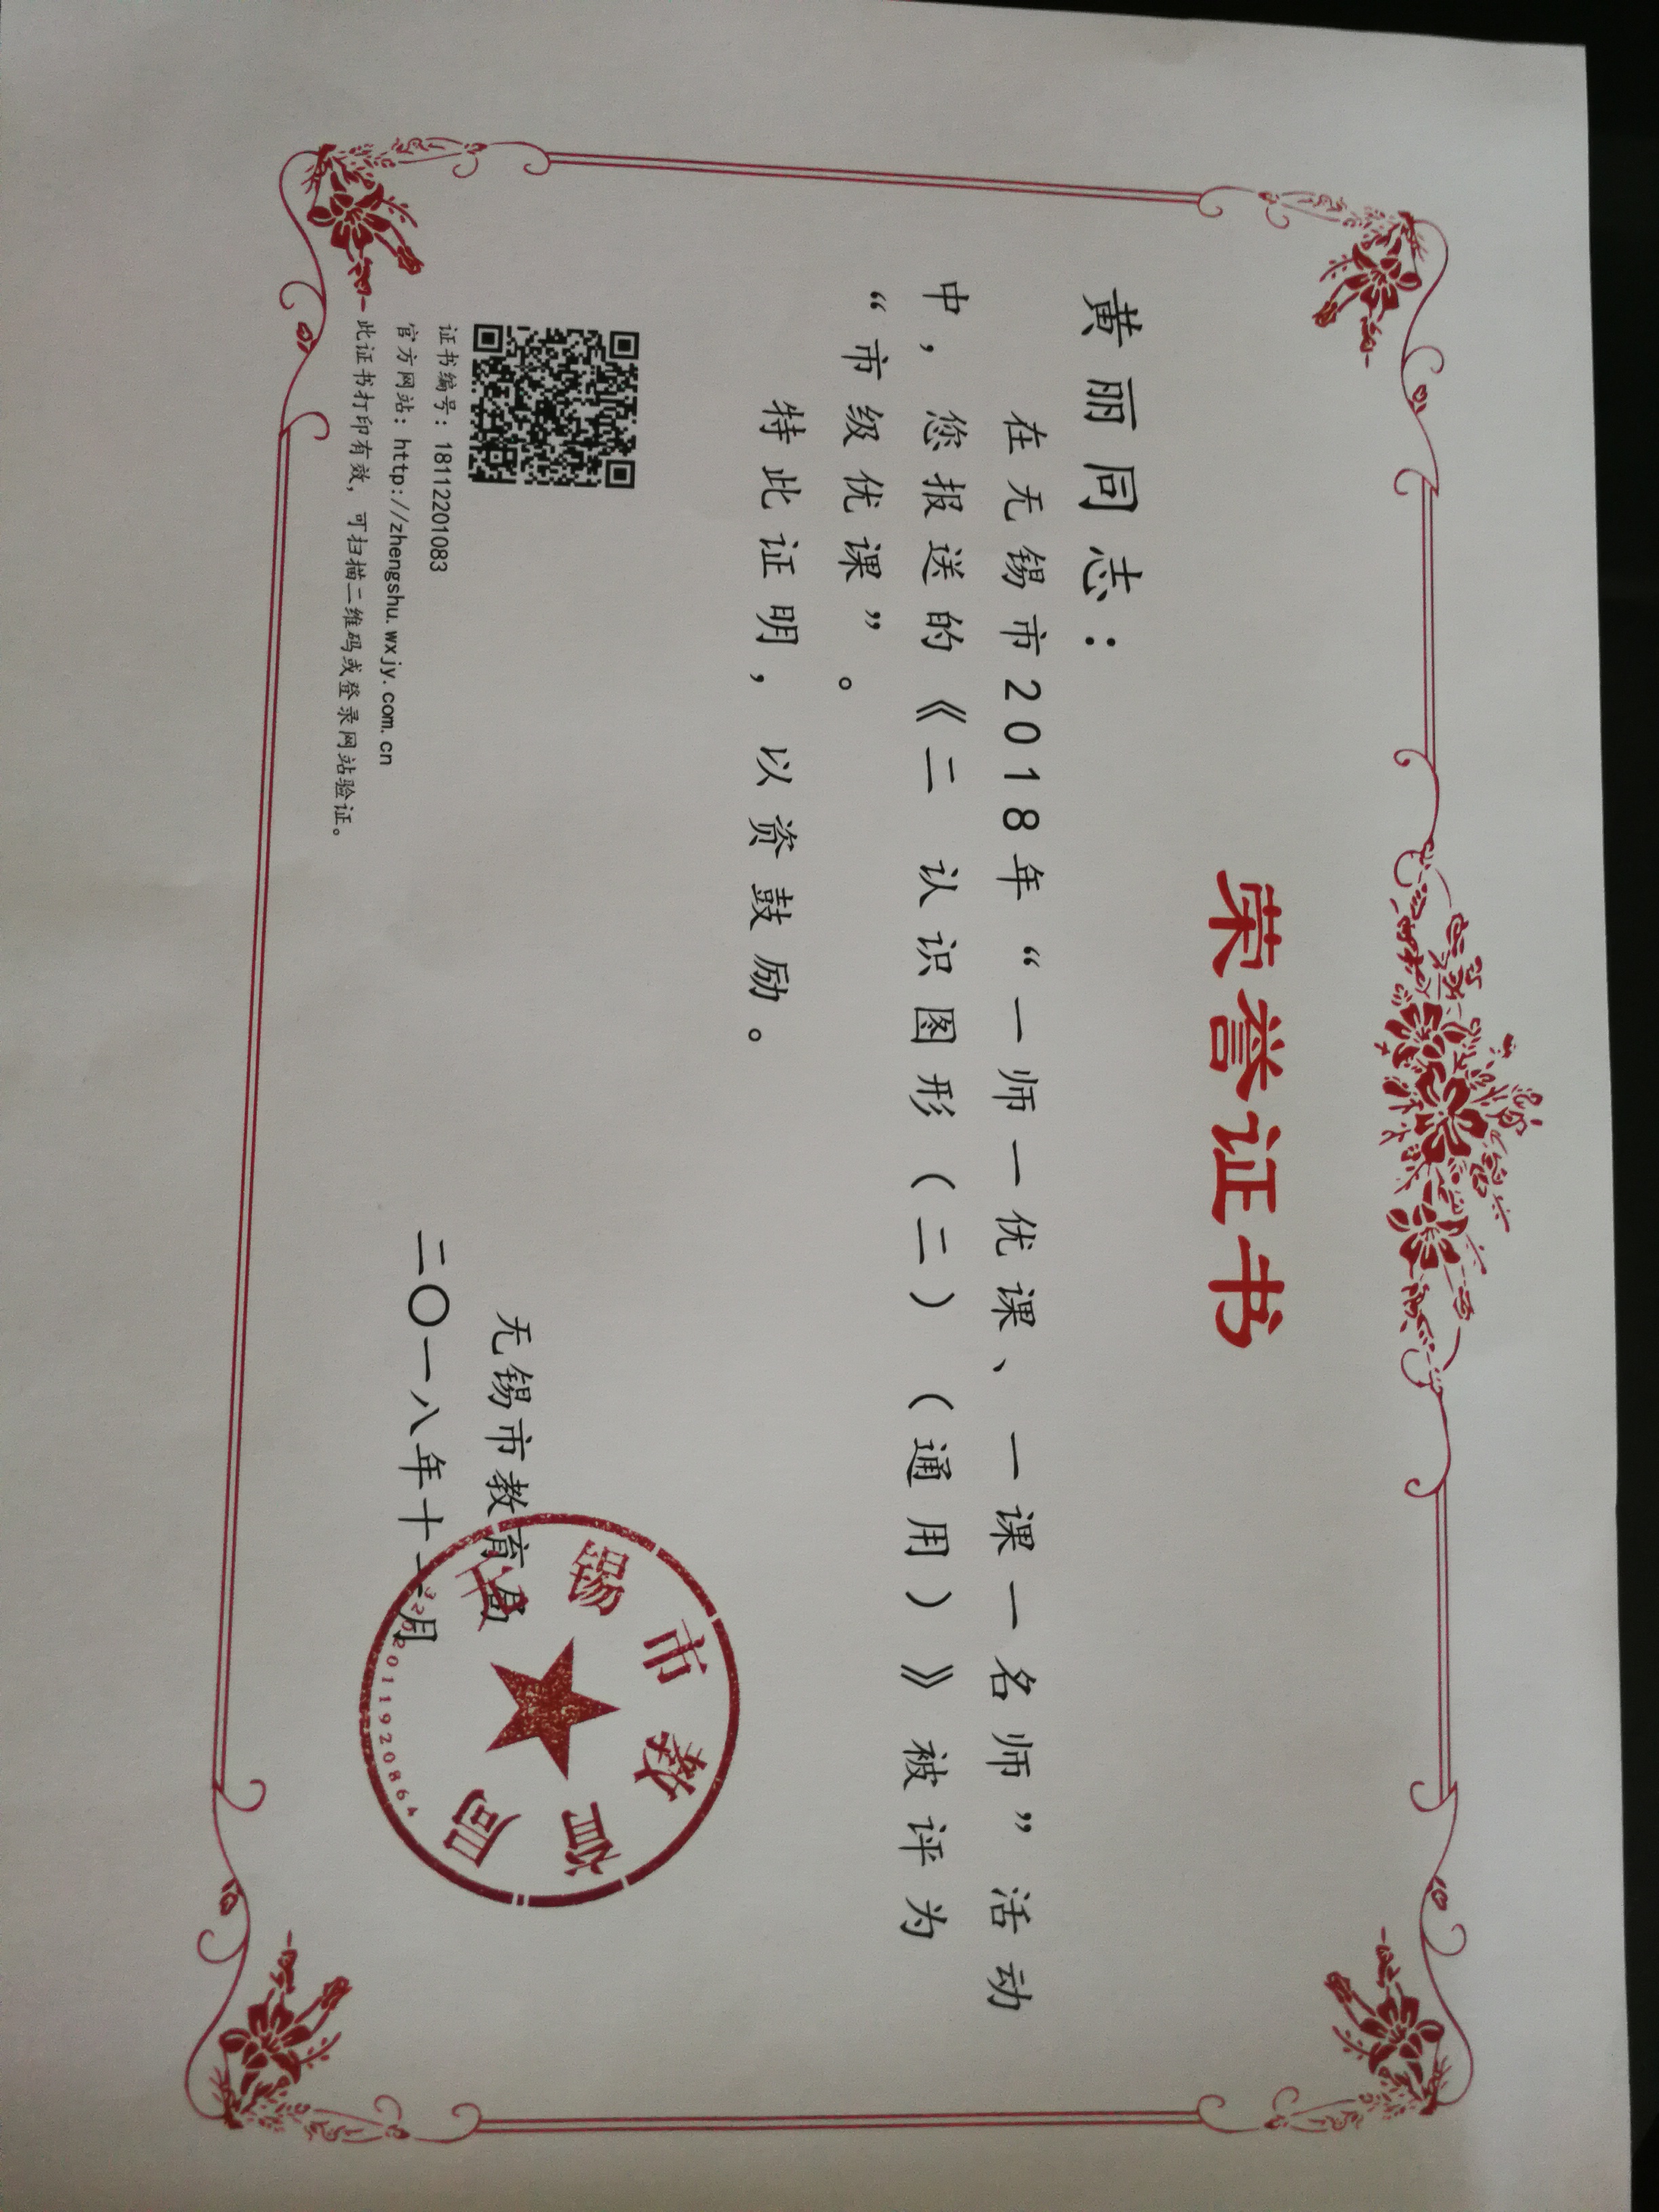 荣誉证书
黄丽同志：
在无锡市2018年“一师一优课、一课一名师”活动
中，您报送的《二 认识图形（二）（通用）》被评为
“市级优课”。
特此证明，以资鼓励。
证书编号：18112201083
官方网站：http://zhengshu.wxjy.com.cn
此证书打印有效，可扫描二维码或登录网站验证。
无锡市教育局
二〇一八年十二月
无锡市教育局